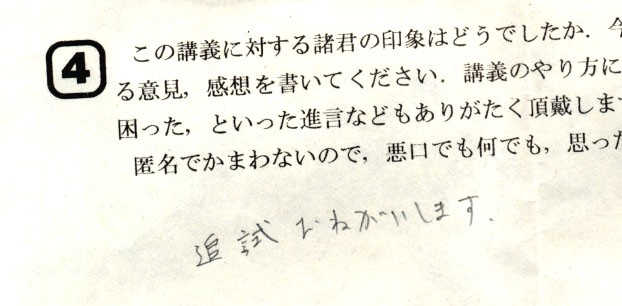 4
この講義に対する諸君の印象はどうでしたか．今
る意見，感想を書いてください．講義のやり方に
困った，といった進言などもありがたく頂戴しま
匿名でかまわないので，悪口でも何でも，思った
追試おねがいします.